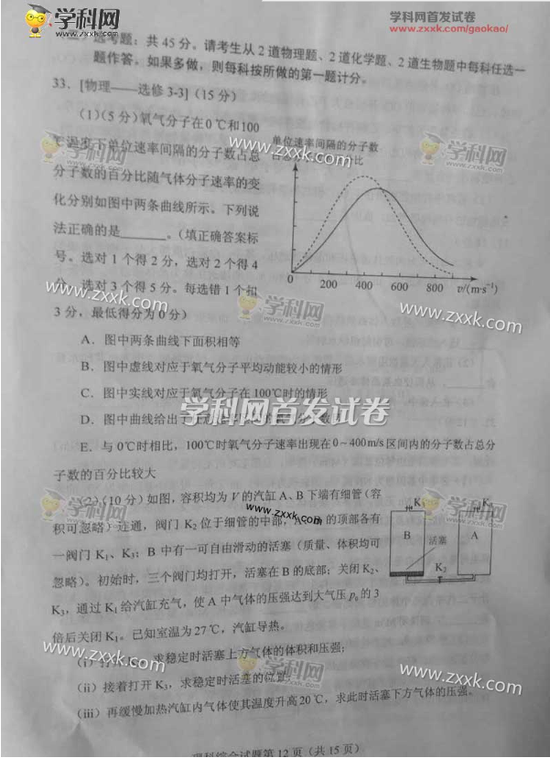 学科网
www.zxxk.com
学科网首发试卷
www.zxxk.com/gaokao/
选考题：共 45 分。请考生从 2 道物理题、2 道化学题、2 道生物题中每科任选一
题作答。如果多做，则每科按所做的第一题计分。
33．[物理——选修 3-3]（15 分）
（1）（5 分）氧气分子在 0 ℃和 100
℃温度下单位速率间隔的分子数占总
分子数的百分比随气体分子速率的变
化分别如图中两条曲线所示。下列说
法正确的是______。（填正确答案标
号。选对 1 个得 2 分，选对 2 个得 4
分，选对 3 个得 5 分。每选错 1 个扣
3 分，最低得分为 0 分）
单位速率间隔的分子数
比
0 200 400 600 800 v/(m·s⁻¹)
学科网
www.zxxk.com
学科网
www.zxxk.com
学科网
www.zxxk.com
学科网
www.zxxk.com
A．图中两条曲线下面积相等
B．图中虚线对应于氧气分子平均动能较小的情形
C．图中实线对应于氧气分子在 100℃时的情形
D．图中曲线给出了
学科网首发试卷
E．与 0℃时相比，100℃时氧气分子速率出现在 0～400m/s 区间内的分子数占总分
子数的百分比较大
（2）（10 分）如图，容积均为 V 的汽缸 A、B 下端有细管（容
www.zxxk.com
积可忽略）连通，阀门 K₂ 位于细管的中部，的顶部各有
一阀门 K₁、K₃；B 中有一可自由滑动的活塞（质量、体积均可
忽略）。初始时，三个阀门均打开，活塞在 B 的底部；关闭 K₂、
K₃，通过 K₁ 给汽缸充气，使 A 中气体的压强达到大气压 p₀ 的 3
倍后关闭 K₁。已知室温为 27℃，汽缸导热。
B
A
活塞
K₂
学科网
www.zxxk.com
学科网
www.zxxk.com
（i）求稳定时活塞上方气体的体积和压强；
（ii）接着打开 K₃，求稳定时活塞的位置；
（iii）再缓慢加热汽缸内气体使其温度升高 20℃，求此时活塞下方气体的压强。
理科综合试题第 12 页（共 15 页）